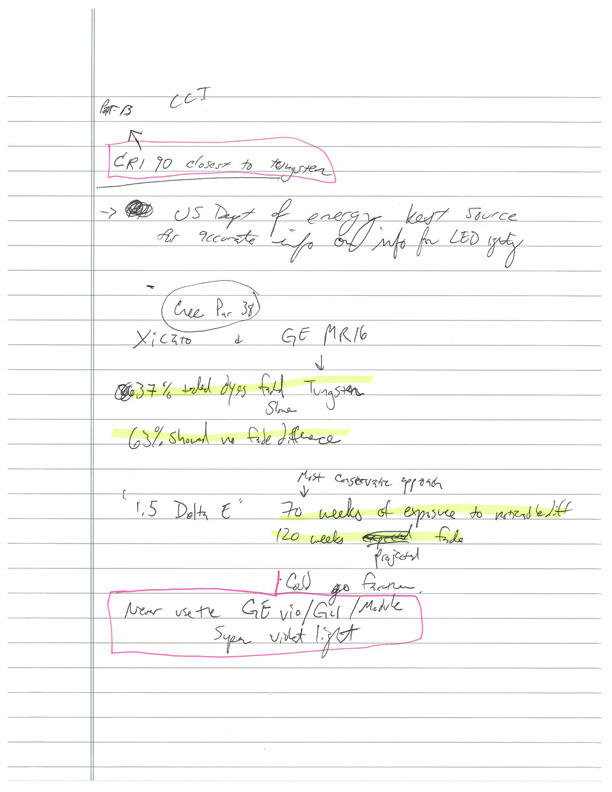 CCT
CRI 90 closest to tungsten
-> US Dept of energy best source
for accurate info and info for LED
Cree Par 38
Xicato & GE MR16
37% tested dyes fade Tungsten
Slower
63% showed no fade difference
Most conservative approach
"1.5 Delta E" 70 weeks of exposure to noticable diff
120 weeks fade
projected
Could go further
Never use the GE vio / Module
Super violet light